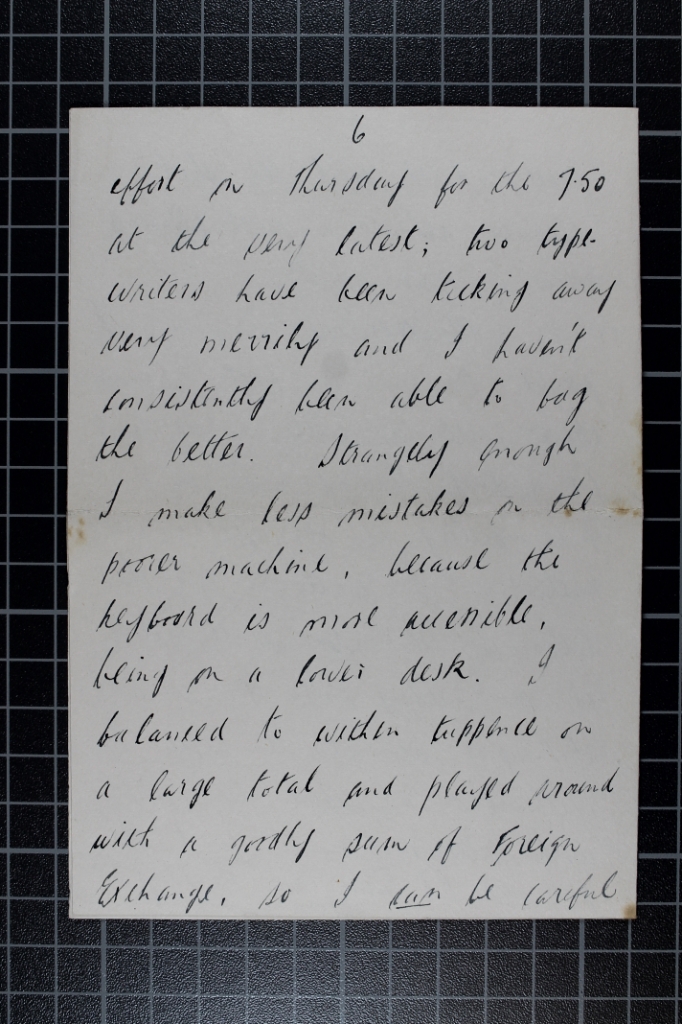 6
effort on Thursday for the 7.50
at the very latest; two type-
writers have been ticking away
very merrily and I haven't
consistently been able to bag
the better. Strangely enough
I make less mistakes on the
poorer machine, because the
keyboard is more accessible,
being on a lower desk. I
balanced to within tuppence on
a large total and played around
with a goodly sum of Foreign
Exchange, so I can be careful